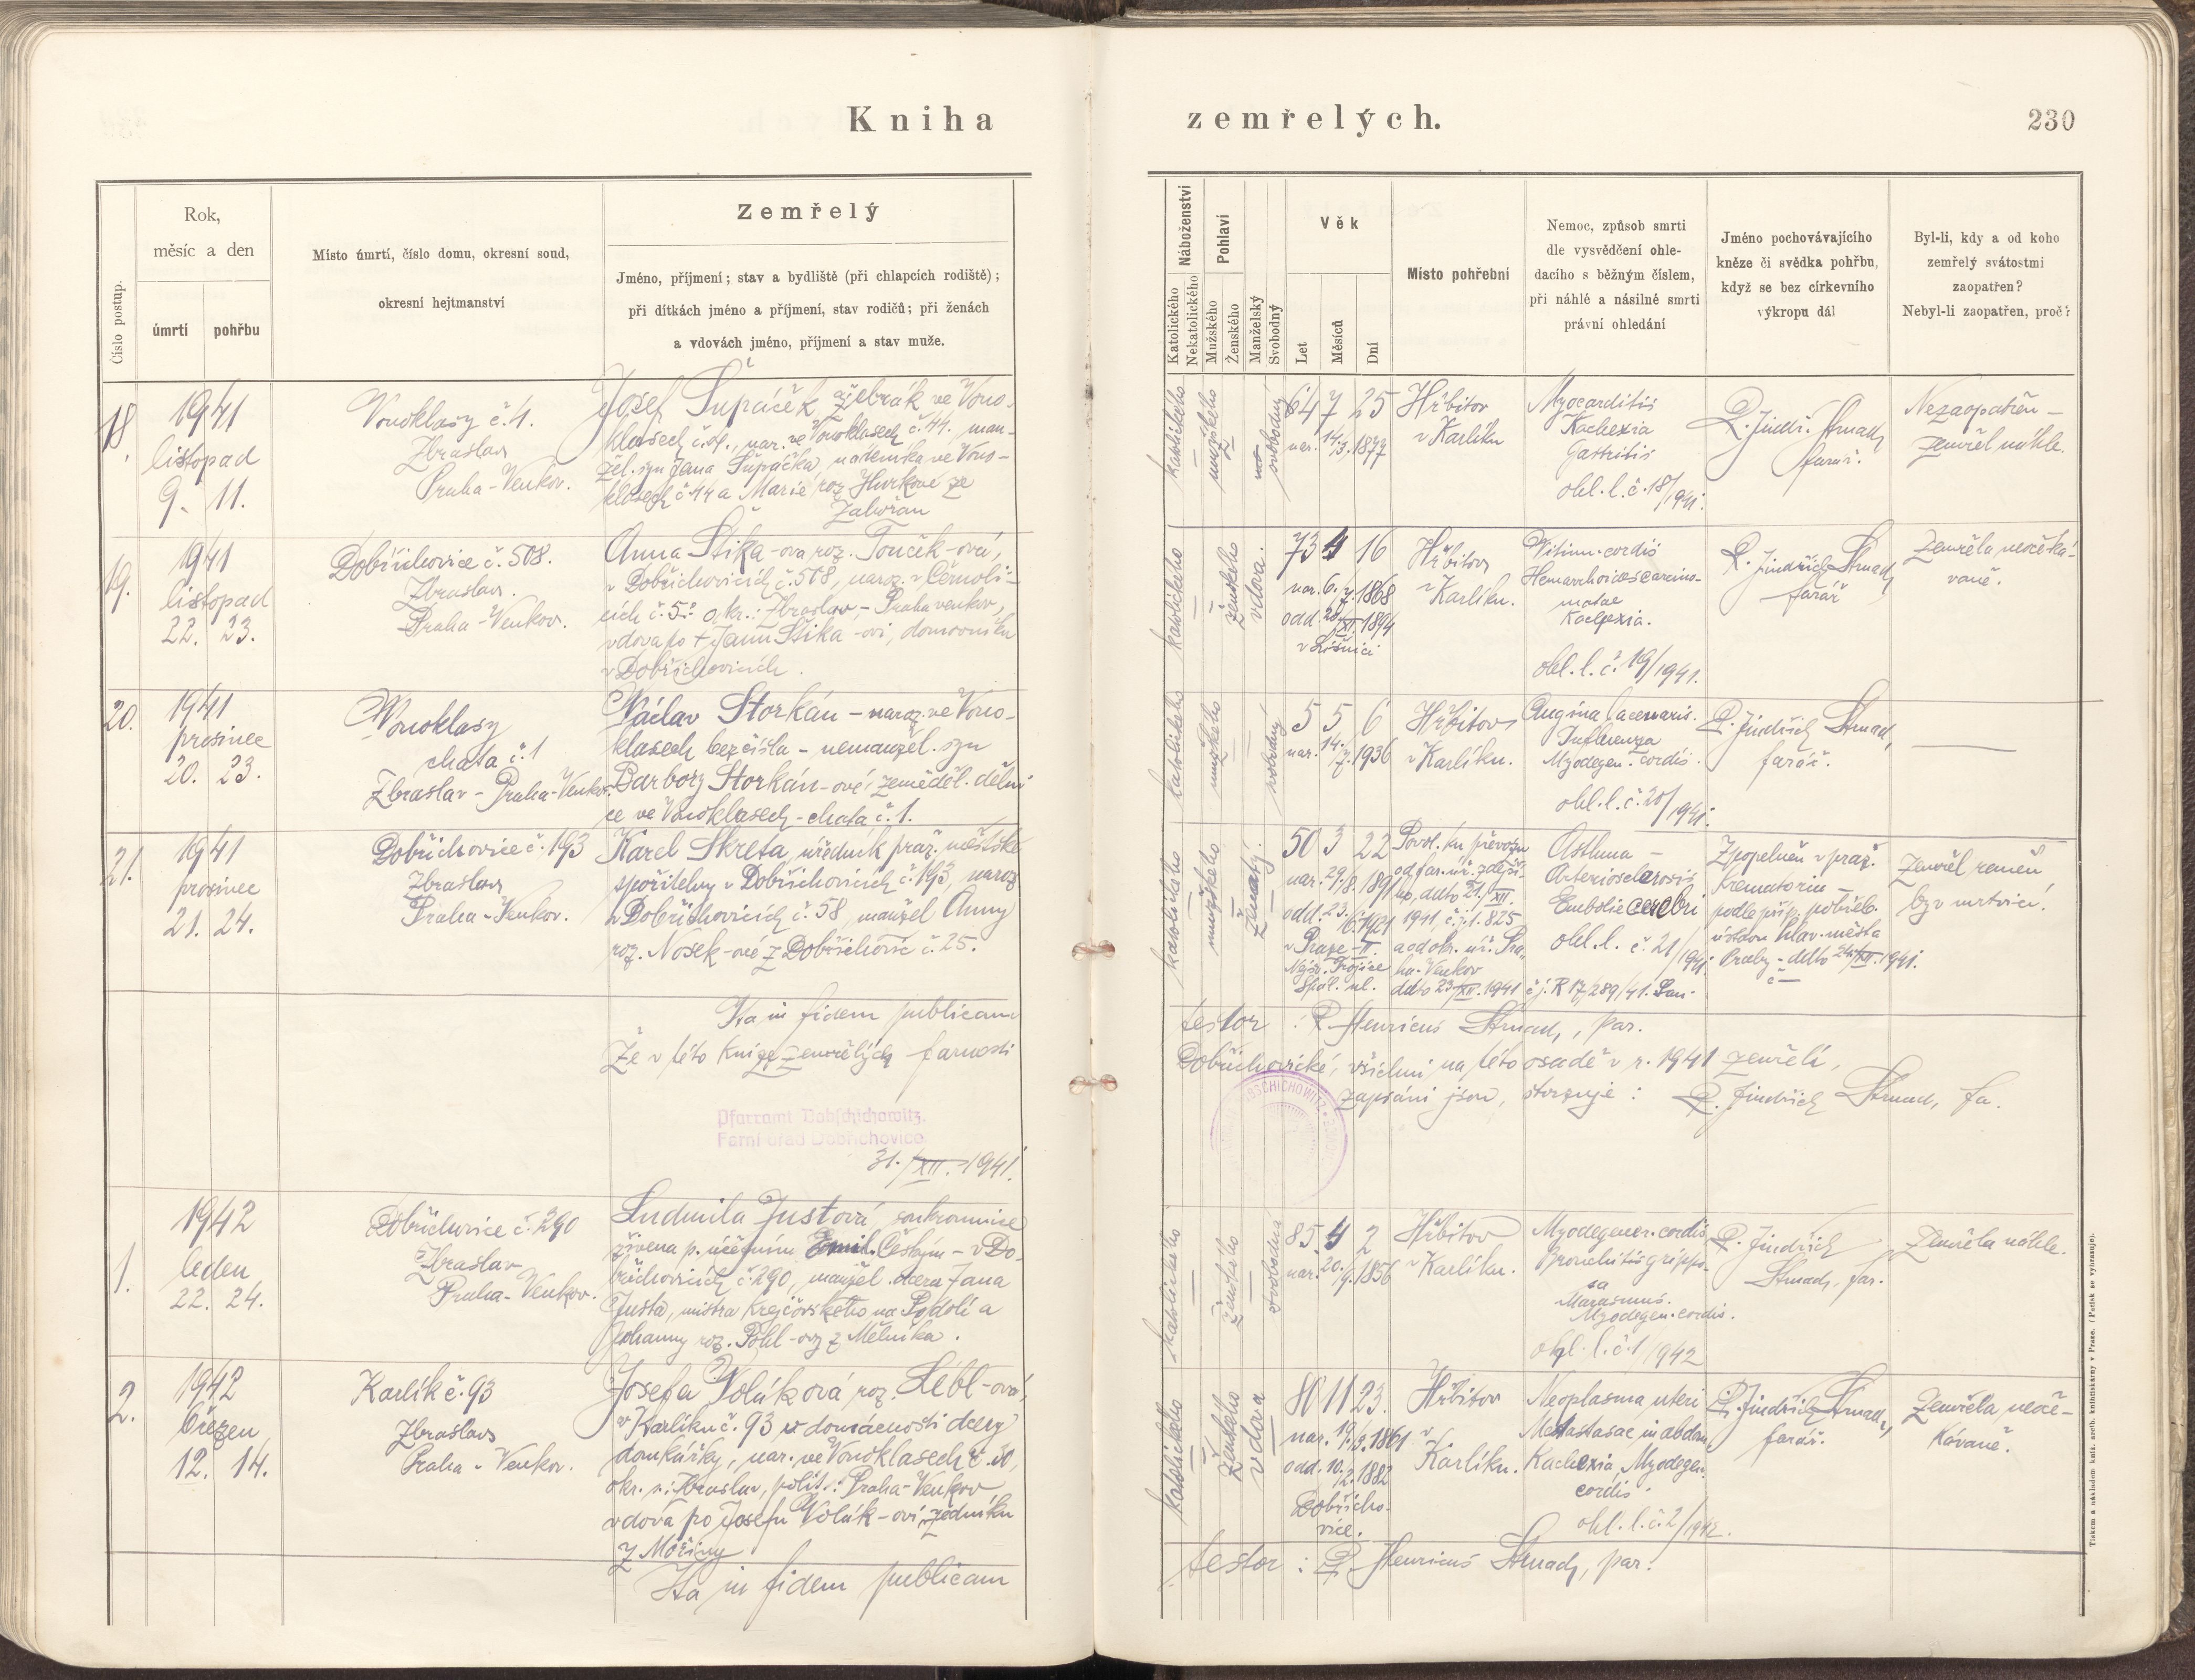 Kniha zemřelých.
230
Číslo postup.
Rok,
měsíc a den
úmrtí
pohřbu
Místo úmrtí, číslo domu, okresní soud,
okresní hejtmanství
Zemřelý
Jméno, příjmení; stav a bydliště (při chlapcích rodiště);
při dítkách jméno a příjmení, stav rodičů; při ženách
a vdovách jméno, příjmení a stav muže.
Náboženství
Katolického
Nekatolického
Pohlaví
Mužského
Ženského
Manželský
Svobodný
Věk
Let
Měsíců
Dní
Místo pohřební
Nemoc, způsob smrti
dle vysvědčení ohle-
dacího s běžným číslem,
při náhlé a násilné smrti
právní ohledání
Jméno pochovávajícího
kněze či svědka pohřbu,
když se bez církevního
výkropu dál
Byl-li, kdy a od koho
zemřelý svátostmi
zaopatřen?
Nebyl-li zaopatřen, proč?
18.
1941
listopad
9. 11.
Vonoklasy č. 1.
Zbraslav
Praha-Venkov.
Josef Šupáček, žebrák ve Vono-
klasech, nar. ve Vonoklasech č. 44. man-
žel. syn Jana Šupáčka, nádeníka ve Vono-
klasech č. 44 a Marie roz. Hurkové ze
Zahořan
katolického
mužského
svobodný
64 7 25
nar. 14./3. 1877
Hřbitov
v Karlíku
Myocarditis
Kachexia
Gastritis
ohl. l. č. 18/1941.
P. Jindř. Strnad,
farář.
Nezaopatřen –
zemřel náhle.
19.
1941
listopad
22. 23.
Dobřichovice č. 508.
Zbraslav.
Praha-Venkov.
Anna Štika-ova roz. Touček-ová,
v Dobřichovicích č. 508, naroz. v Černoli-
cích č. 5, okr.: Zbraslav – Praha venkov,
vdova po + Janu Štika-ovi, domovníku
v Dobřichovicích.
katolického
ženského
vdova.
73 4 16
nar. 6./7. 1868
odd. 20./XI. 1894
Hřbitov
v Karlíku.
Vitium cordis
Hemorrhoides carcino-
matae
Kachexia.
ohl. l. č. 19/1941.
P. Jindřich Strnad,
farář
Zemřela neočeká-
vaně.
20.
1941
prosinec
20. 23.
Vonoklasy
chata č. 1
Zbraslav – Praha-Venkov.
Václav Štorkán – naroz. ve Vono-
klasech bez čísla – nemanžel. syn
Barbory Štorkán-ové, zeměděl. dělni
ce ve Vonoklasech – chata č. 1.
katolického
mužského
svobodný
5 5 6
nar. 14./7. 1936
Hřbitov
v Karlíku.
Angina lacunaris.
Influenza
Myodegen. cordis.
ohl. l. č. 20/1941.
P. Jindřich Strnad,
farář.
21.
1941
prosinec
21. 24.
Dobřichovice č. 193
Zbraslav
Praha-Venkov.
Karel Skreta, úředník praž. městské
spořitelny v Dobřichovicích č. 193, naroz
v Dobřichovicích č. 58, manžel Anny
roz. Nosek-ové z Dobřichovic č. 25.
katolického
mužského
ženatý.
50 3 22
nar. 29./8. 1891
odd. 23./6. 1921
v Praze-II.
Nejsv. Trojice
Spál. ul.
Povol. ku převozu
od far. úř. zdejší-
ho, ddto 21./XII.
1941, č. j. 825
a od okr. úř. Pra-
ha-Venkov
ddto 23./XII. 1941 č. j. R 17/289/41. San.
Asthma –
Arteriosclerosis
Embolie cerebri
ohl. l. č. 21/1941.
Zpopelněn v praž.
krematoriu –
podle příp. pohřeb.
ústavu hlav. města
Prahy – ddto 24./XII. 1941.
č –
Zemřel raněn
byv mrtvicí.
Ita in fidem publicam
testor: P. Henricus Strnad, par.
Že v této knize zemřelých farnosti
Dobřichovické, všichni na této osadě v r. 1941 zemřelí,
zapsáni jsou, stvrzuje: P. Jindřich Strnad, fa.
Pfarramt Dobschichowitz.
Farní úřad Dobřichovice
31./XII. 1941.
1.
1942
leden
22. 24.
Dobřichovice č. 290
Zbraslav
Praha-Venkov.
Ludmila Justová, soukromnice
živena p. účetním Emil. Češkým – v Do-
břichovicích č. 290, manžel. dcera Jana
Justa, mistra krejčovského na Podolí a
Johanny roz. Pohl-ovy z Mělníka.
katolického
ženského
svobodná
85 4 2
nar. 20./9. 1856
Hřbitov
v Karlíku.
Myodegener. cordis
Bronchitis grippo-
sa
Marasmus.
Myodegen. cordis.
ohl. l. č. 1/1942
P. Jindřich
Strnad, far.
Zemřela náhle.
2.
1942
březen
12. 14.
Karlík č. 93
Zbraslav
Praha-Venkov.
Josefa Volúková roz. Lébl-ová,
v Karlíku č. 93 v domácnosti dcery
domkářky, nar. ve Vonoklasech č. 30,
okr. s.: Zbraslav, polit.: Praha-Venkov
vdova po Josefu Volúk-ovi, zedníku
z Mořiny
katolického
ženského
vdova
80 11 23.
nar. 19./3. 1861
odd. 10./2. 1882
Dobřicho-
vice.
Hřbitov
v
Karlíku.
Neoplasma uteri
Metastasae in abdom.
Kachexia, Myodegen.
cordis.
ohl. l. č. 2/1942.
P. Jindřich Strnad,
farář.
Zemřela neoče-
kávaně.
Ita in fidem publicam
testor: P. Henricus Strnad, par.